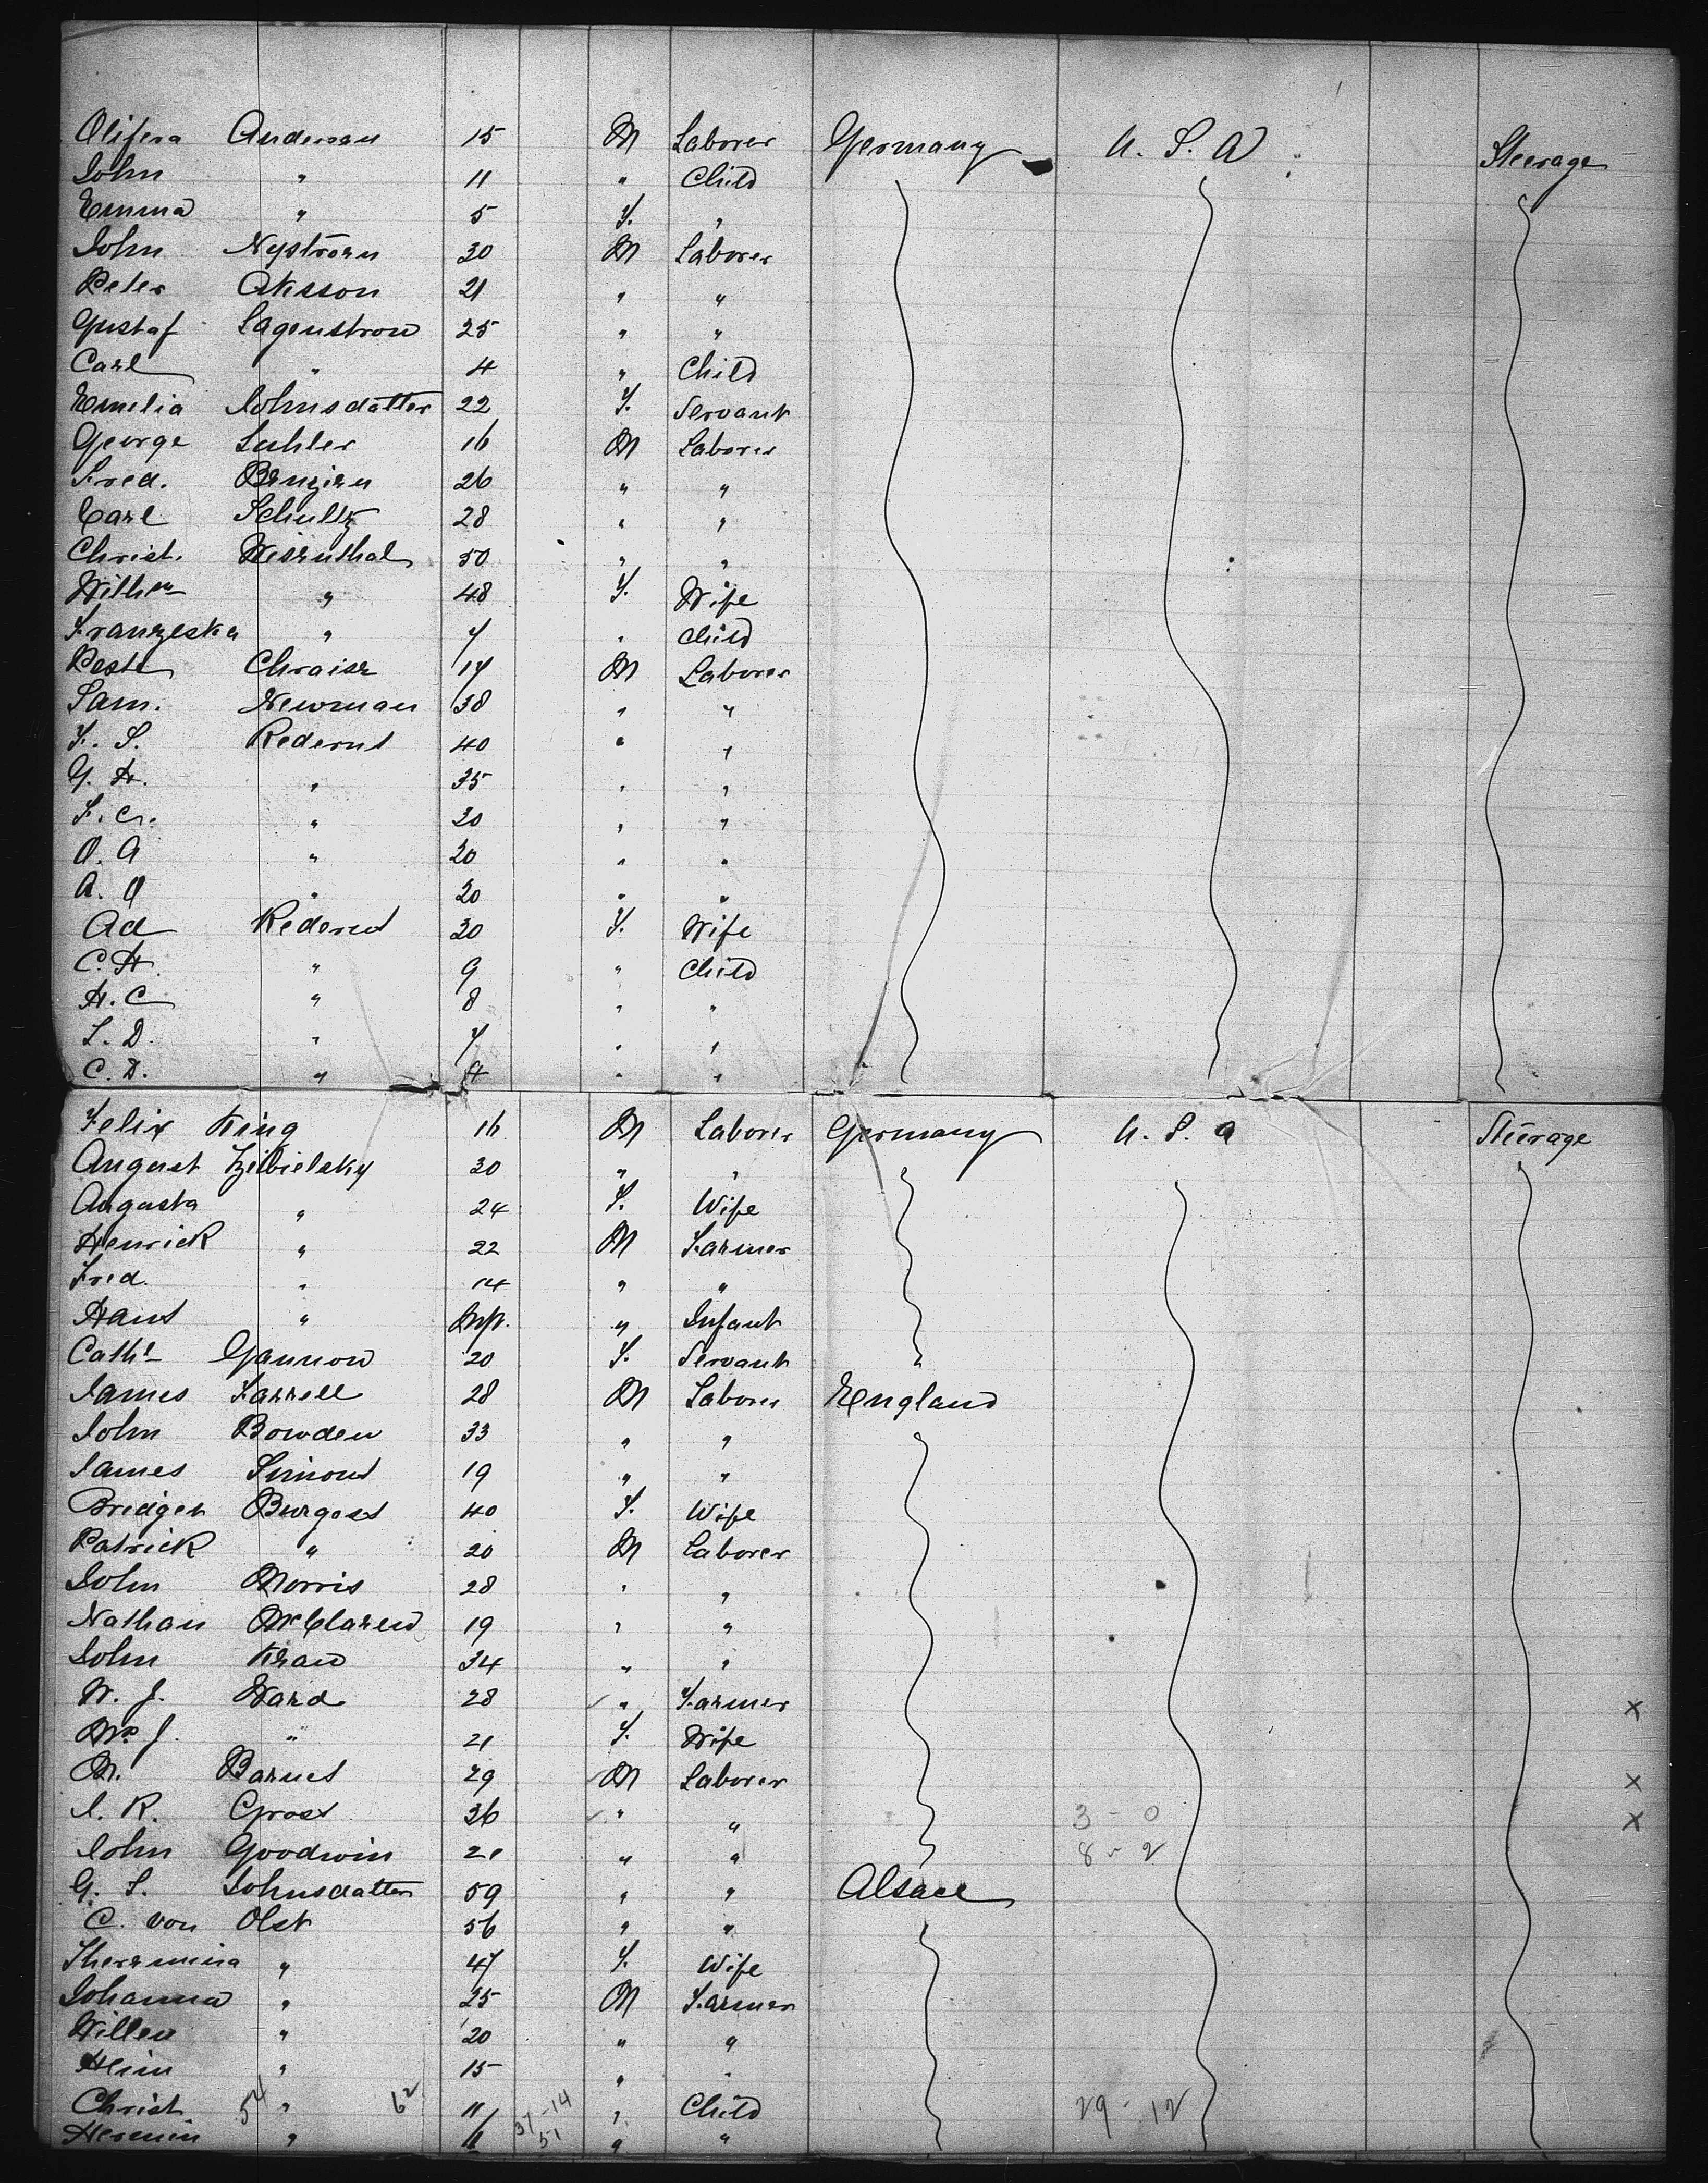 Olifera Anderson 15 M Laborer Germany U. S. A Steerage
John " 11 " Child
Emma " 5 F. "
John Nyström 30 M Laborer
Peter Akesson 21 " "
Gustaf Lagenstrom 25 " "
Carl " 4 " Child
Emelia Johnsdatter 22 F. Servant
George Luhler 16 M Laborer
Fred. Benzien 26 " "
Carl Schultz 28 " "
Christ. Wiesenthal 50 " "
Wilhm " 48 F. Wife
Franzeska " 7 " Child
17 M Laborer
Sam. Newman 38 " "
F. S. Rederus 40 " "
G. H. " 35 " "
F. C. " 30 " "
O. A " 20 " "
A. O " 20 " "
Ad Rederus 30 F. Wife
C. H. " 9 " Child
H. C " 8 " "
S. D. " 7 " "
C. D. " 4 " "
Felix King 16 M Laborer Germany U. S. A Steerage
August Czibielsky 30 " "
Augusta " 24 F. Wife
Henrick " 22 M Farmer
Fred. " 14 " "
Hans " Inft. " Infant
Cath. Gannon 20 F. Servant
James Farrell 28 M Laborer England
John Bowden 33 " "
James Simons 19 " "
Bridget Burgess 40 F. Wife
Patrick " 20 M Laborer
John Morris 28 " "
Nathan McClaren 19 " "
John 34 " "
W. J. Ward 28 " Farmer x
Mrs J. " 21 F. Wife
M. Barnes 29 M Laborer x
J. R. Gross 36 " " 3 - 0 x
John Goodwin 21 " " 8 - 2
G. S. Johnsdatter 59 " " Alsace
C. von Olst 56 " "
" 47 F. Wife
Johanna " 25 M Farmer
Willem " 20 " "
Hein " 15 " "
Christ " 11 " Child 29 - 12
Hermin " 11 " "